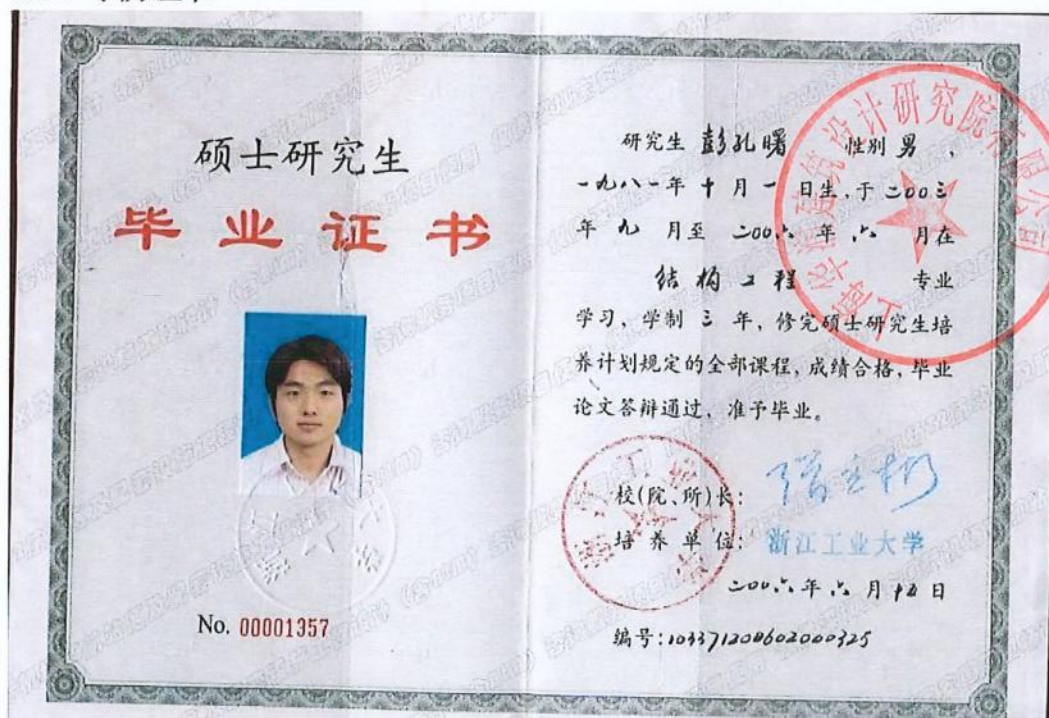 硕士研究生
毕业证书
No. 00001357
研究生 彭孔曙 性别 男,
一九八一年 十 月 一 日生,于 二00三
年 九 月至 二00六 年 六 月在
结构工程 专业
学习,学制 三 年,修完硕士研究生培
养计划规定的全部课程,成绩合格,毕业
论文答辩通过,准予毕业。
校(院、所)长:
培养单位: 浙江工业大学
二00六年 六 月 十五 日
编号:103371200602000325